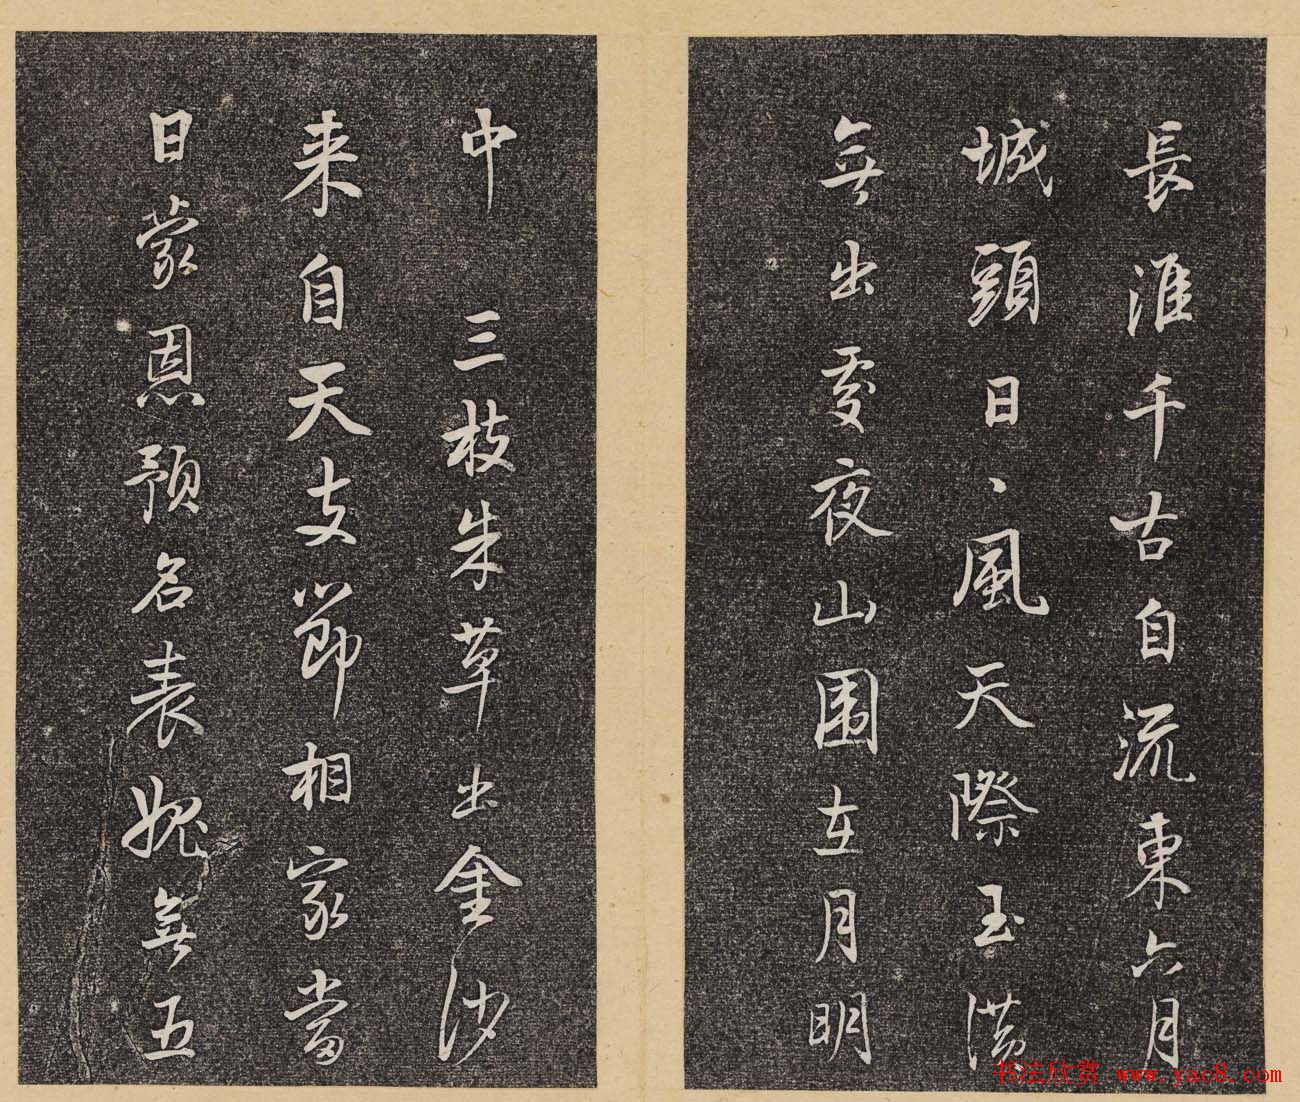 長淮千古自流東六月
城頭日、風天際玉蕩
無出處夜山围在月明
中 三枝朱草出金沙
来自天支節相家當
日蒙恩預名表愧無五
书法欣赏 www.yac8.com